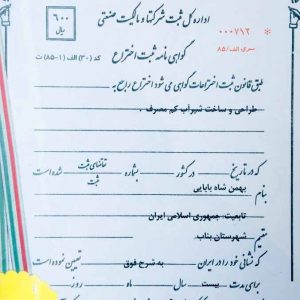 ۶۰۰
ریال
اداره کل ثبت شرکتها و مالکیت صنعتی
۰۰۰۷۱۲
سری الف/۸۵
گواهی نامه ثبت اختراع
کد (۳۰) الف (۱-۸۵) ث
طبق قانون ثبت اختراعات گواهی می شود اختراع راجع به
طراحی و ساخت شیرآب کم مصرف .
که در تاریخ در کشور بشماره تقاضای ثبت شده است
ثبت
بنام بهمن شاه بابایی
تابعیت: جمهوری اسلامی ایران
مقیم شهرستان بناب
که نشانی خود را در ایران به شرح فوق تعیین نموده است
برای مدت بیست سال ماه روز